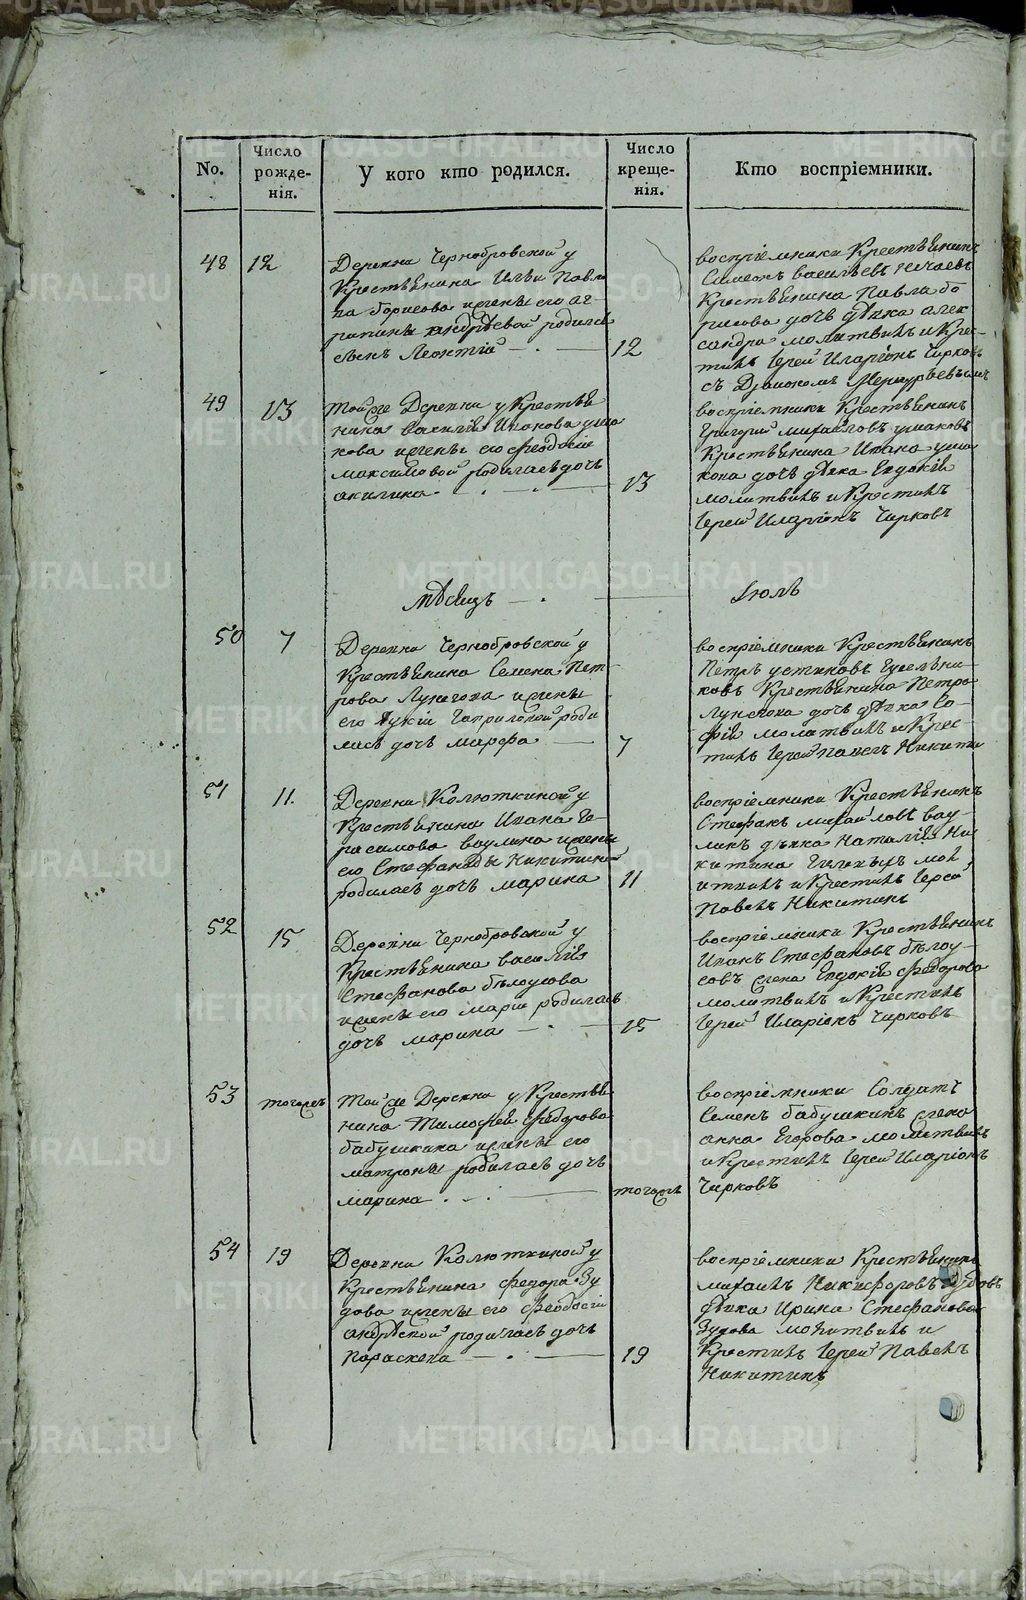 METRIKI.GASO-URAL.RU
No.
Число рожде-нія.
У кого кто родился.
Число креще-нія.
Кто воспріемники.
48
12
Деревни Чернобровской у
Крестьянина Ильи Павло
ва Борисова и жены его аг-
рипины андреевой родился
сынъ Леонтій
12
воспріемники Крестьянинъ
Симеонъ васильевъ Нечаевъ
Крестьянина Павла бо
рисова дочь девка алек
сандра молитвилъ и Крес-
тилъ Іерей Иларіонъ Чирковъ
съ Дьякономъ Меркурьевымъ
49
13
Той же Деревни у Крестья
нина василья Иванова уша
кова и жены его феодосіи
максимовой родилась дочь
акилина
13
воспріемники Крестьянинъ
Григорій михайловъ ушаковъ
Крестьянина Ивана уша
кова дочь девка Евдокія
молитвилъ и Крестилъ
Іерей Иларіонъ Чирковъ
месяцъ
Іюль
50
7
Деревни Чернобровской у
Крестьянина Семена Пет-
рова Лунегова и жены
его Лукіи Гавриловой роди
лась дочь марфа
7
воспріемники Крестьянинъ
Петръ устиновъ
ковъ Крестьянина Петра
Лунегова дочь девка Со-
фія молитвилъ и Крес-
тилъ Іерей Павелъ Никитин
51
11.
Деревни Колюткиной у
Крестьянина Ивана Ге-
расимова ваулина и жены
его Стефаниды Никитиной
родилась дочь марина
11
воспріемники Крестьянинъ
Стефанъ михайловъ вау-
линъ девка Наталія Ни
китина мол
итвилъ и Крестилъ Іерей
Павелъ Никитинъ
52
15
Деревни Чернобровской у
Крестьянина василія
Стефанова белоусова
и жены его маріи родилась
дочь марина
15
воспріемники Крестьянинъ
Иванъ Стефановъ белоу-
совъ жена Евдокія федорова
молитвилъ и Крестилъ
Іерей Иларіонъ Чирковъ
53
тогожъ
Той же Деревни у Крестья
нина Тимофея федорова
бабушкина и жены его
матроны родилась дочь
марина
тогожъ
воспріемники Солдатъ
Семенъ бабушкинъ жена
анна Егорова молитвилъ
и Крестилъ Іерей Иларіонъ
Чирковъ
54
19
Деревни Колюткиной у
Крестьянина федора Зу
дова и жены его феодосіи
андреевой родилась дочь
Параскева
19
воспріемники Крестьянинъ
михаилъ Никифоровъ Зудовъ
девка Ирина Стефанова
Зудова молитвилъ и
Крестилъ Іерей Павелъ
Никитинъ